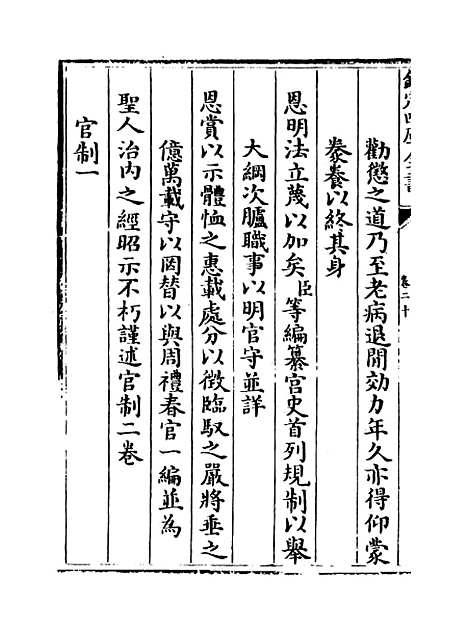 欽定四庫全書
卷二十
勸懲之道乃至老病退閒効力年久亦得仰蒙
豢養以終其身
恩明法立蔑以加矣臣等編纂宫史首列規制以舉
大綱次臚職事以明官守並詳
恩賞以示體恤之惠載處分以徴臨馭之嚴將垂之
億萬載守以罔替以與周禮春官一編並為
聖人治内之經昭示不朽謹述官制二卷
官制一